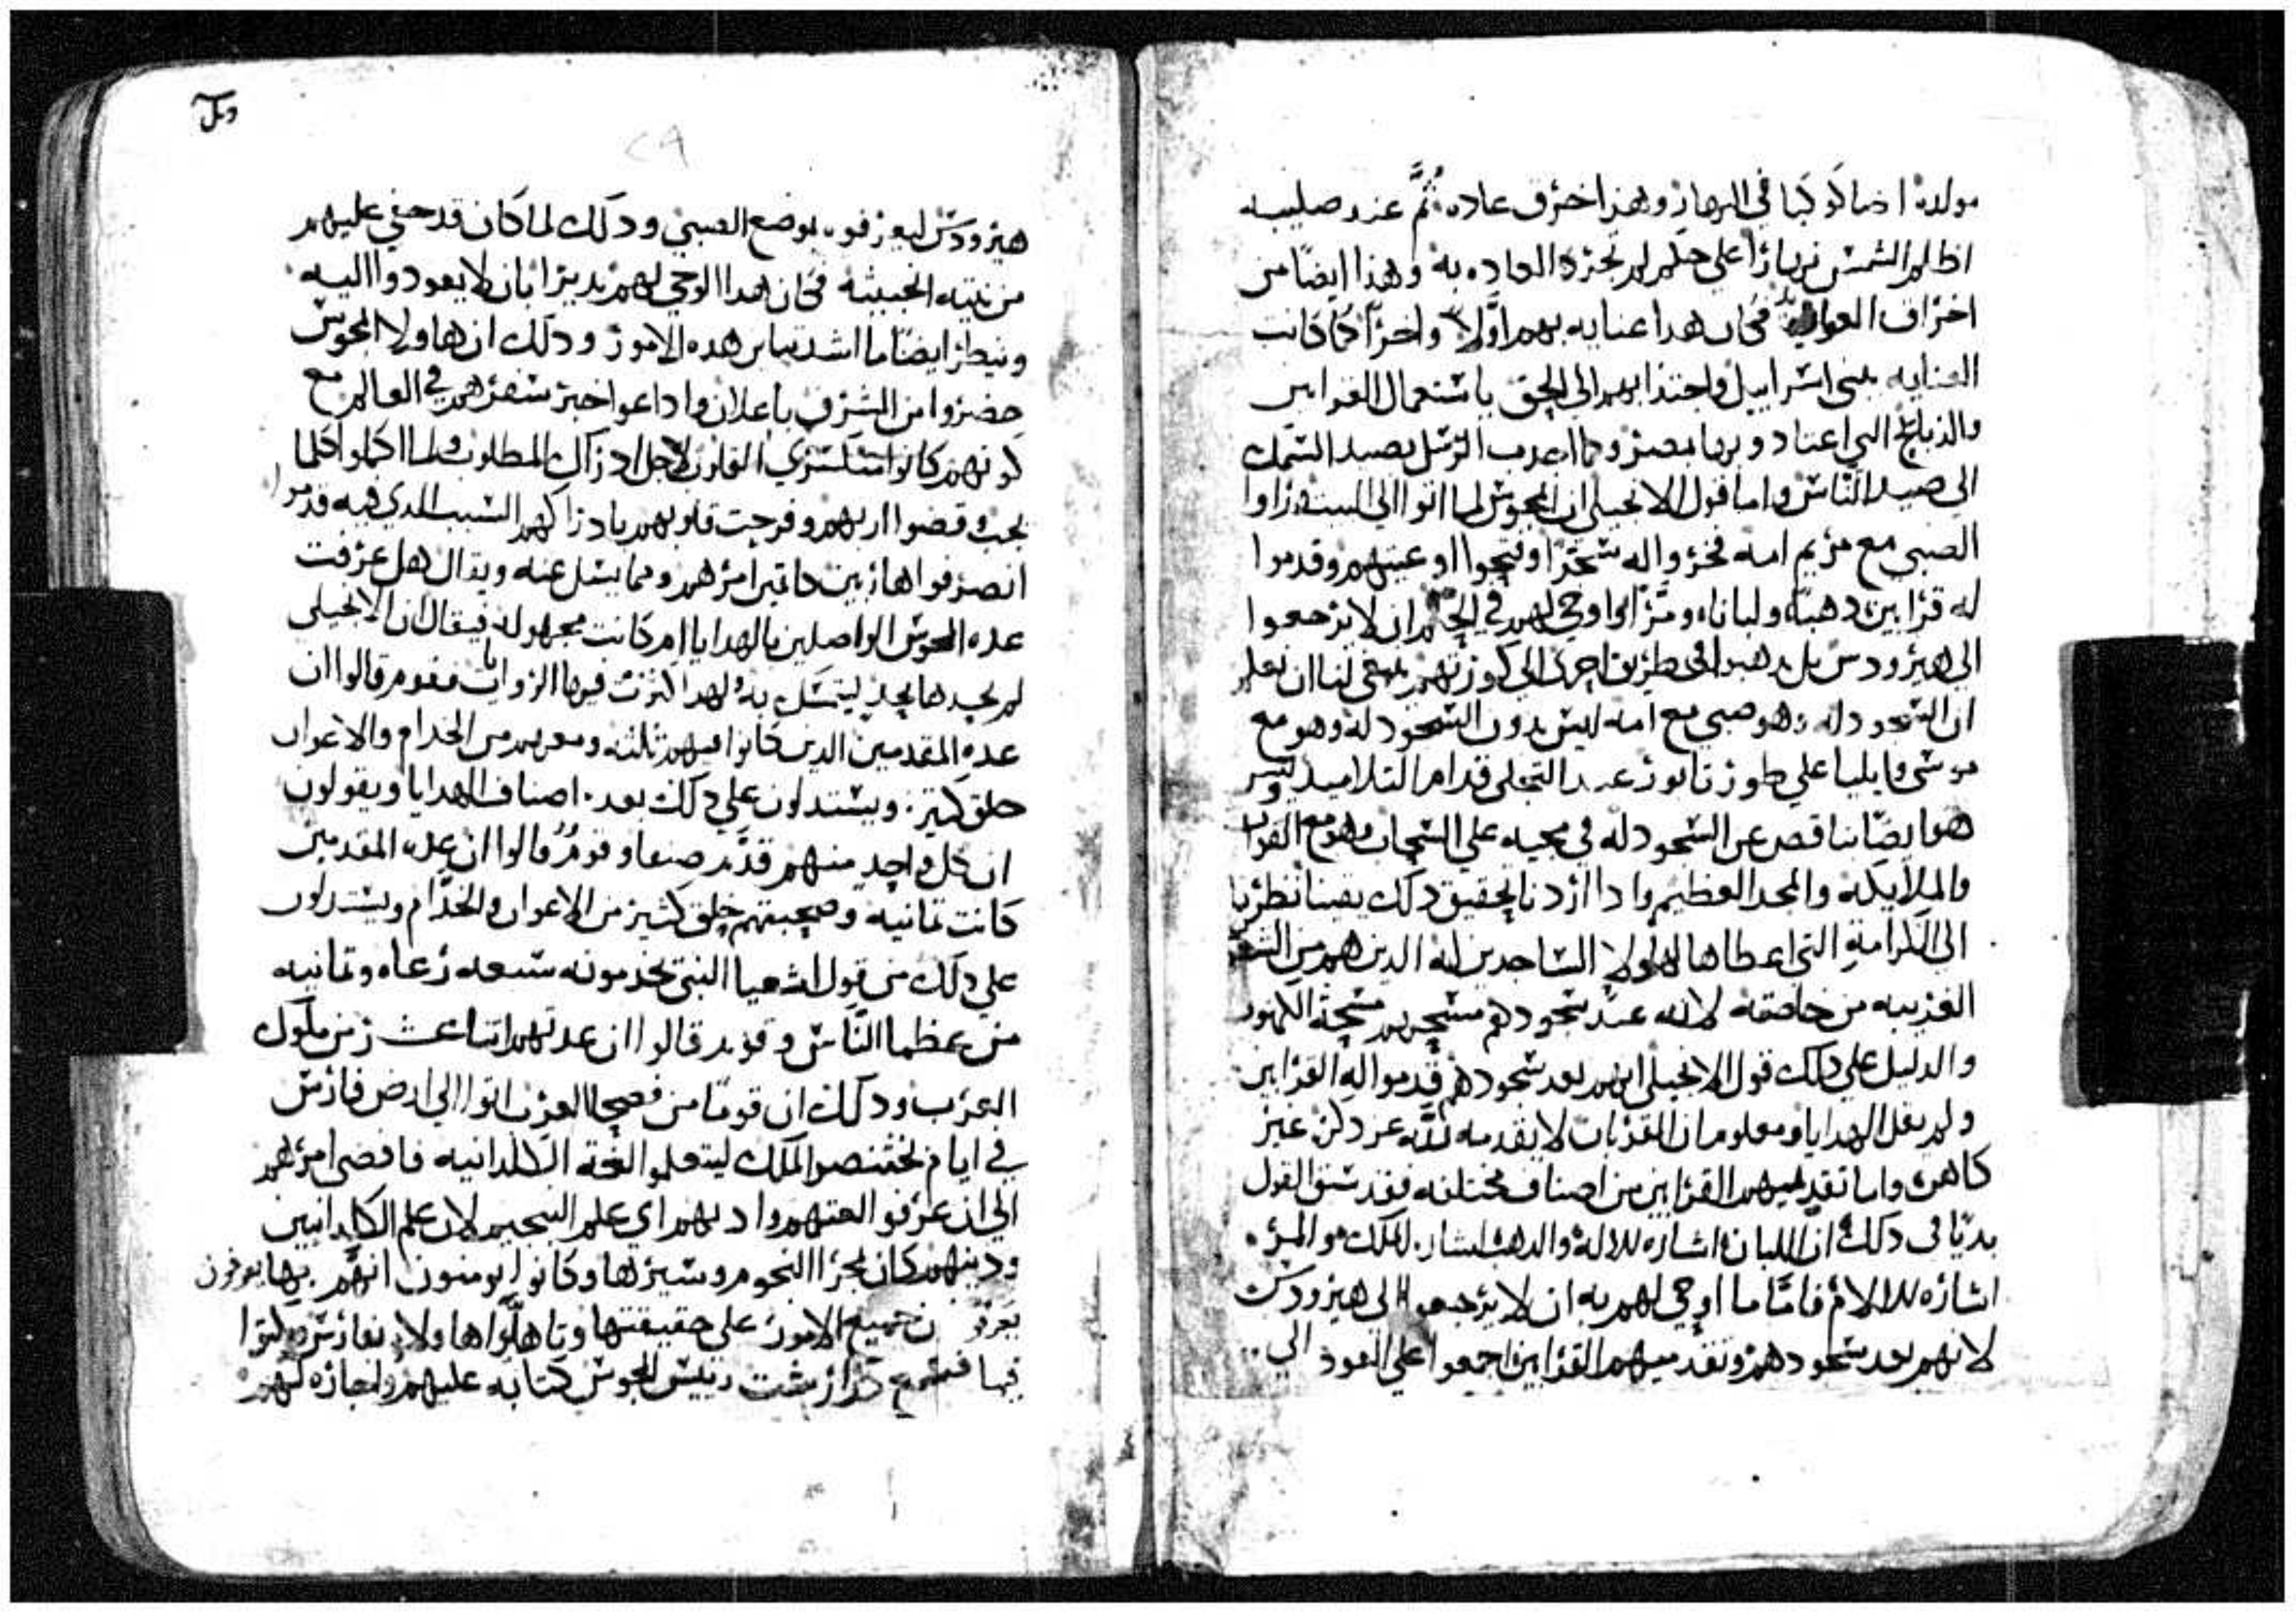 مولده اضا كوكبا في النهار وهذا اخرق عاده ثمَّ عند صليبه
اظلم الشمس نهارًا على حلم لم تجرد العاده به وهذا ايضًا من
اخراف العوايد فكان هدا عنايه بهم اوَّلاً واخرًا كما كانت
العنايه ببني اسراييل واجتذابهم الى الحق باستعمال القرابين
والذبايح التي اعتادوبها بمصر وكما اجدب الرسل بصيد السمك
الى صيد الناس واما قول الانجيلى ان المجوس لما اتوا الى البيت وراوا
الصبي مع مريم امه فخروا له سجدًا وفتحوا اوعيتهم وقدموا
له قرابين دهبًا ولبانا ومرًا واوحي لهم في الحلم ان لا يرجعوا
الى هيرودس بل يدهبوا في طريق اخرى الى كورتهم ينبغي لنا ان نعلم
ان السجود له وهو صبي مع امه ليس بدون السجود له وهو مع
موسى وايليا على طور تابور عند التجلى قدام التلاميد وليس
هو ايضًا بناقص عن السجود له في مجيه على السحاب وهو مع القوات
والملايكه والمجد العظيم وادا اردنا تحقيق دلك يقينا نظرنا
الى الكرامة التي اعطاها لهولا الساجدين له الدين هم من الشعوب
الغريبه من خاصته لانه عند سجودهم مسحهم مسحة الكهنوت
والدليل على دلك قول الانجيلى انهم بعد سجودهم قدموا له القرابين
ولم يقل الهدايا ومعلوم ان القربان لا يقدمه لله عز دكره غير
كاهن واما تقديمهم القرابين من اصناف مختلفه فقد سبق القول
بديًا في دلك ان اللبان اشاره للاله والدهب اشاره للملك والمر
اشاره للالام فامَّا ما اوحي لهم به ان لا يرجعوا الى هيرودس
لانهم بعد سجودهم وتقديمهم القرابين اجمعوا على العود الى
هيرودس ليعرفوه بوضع الصبي ودلك لما كان قد خفي عليهم
من نيته الخبيثه فكان هدا الوحي لهم تدبيرًا بان لا يعودوا اليه
وننظر ايضًا ما اشد تباين هده الامور ودلك ان هاولا المجوس
حضروا من الشرق باعلان واداعوا خبر سفرهم في العالم مع
كونهم كانوا مستسري القلوب لاجل ادراك المطلوب ولما اكملوا كلما
يجب وقضوا اربهم وفرحت قلوبهم بادراكهم السبب الدي فيه قدموا
انصرفوا هاربين كاتمين امرهم ومما يسل عنه ويقال هل عرفت
عده المجوس الواصلين بالهدايا ام كانت مجهوله فيقال ان الانجيلى
لم يحدها بحد ليتمسك به ولهدا كثرت فيها الروايات فقوم قالوا ان
عدة المقدمين الدين كانوا فيهم ثلثه ومعهم من الخدام والاعوان
خلق كتير ويستدلون على دلك بعدد اصناف الهدايا ويقولون
ان كل واحد منهم قدَّم صنفا وقومٌ قالوا ان عده المقدمين
كانت تمانيه وصحبتهم خلق كثير من الاعوان والخدَّام ويستدلون
على دلك من قول اشعيا النبي تخدمونه سبعه رعاه وتمانيه
من عظما النَّاس وقوم قالوا ان عدتهم اتناعشر من ملوك
العرب ودلك ان قومًا من فصحا العرب اتوا الى ارض فارس
في ايام بختنصر الملك ليتعلموا لغة الكلدانيه فافضى امرهم
الى ان عرفوا لغتهم وادبهم اي علم التنجيم لان علم الكلدانيين
ودينهم كان مجرا النجوم وسيرها وكانوا يومنون انهم بها يعرفون
جميع الامور على حقيقتها
فيها زرادشت رييس المجوس كتابه عليهم